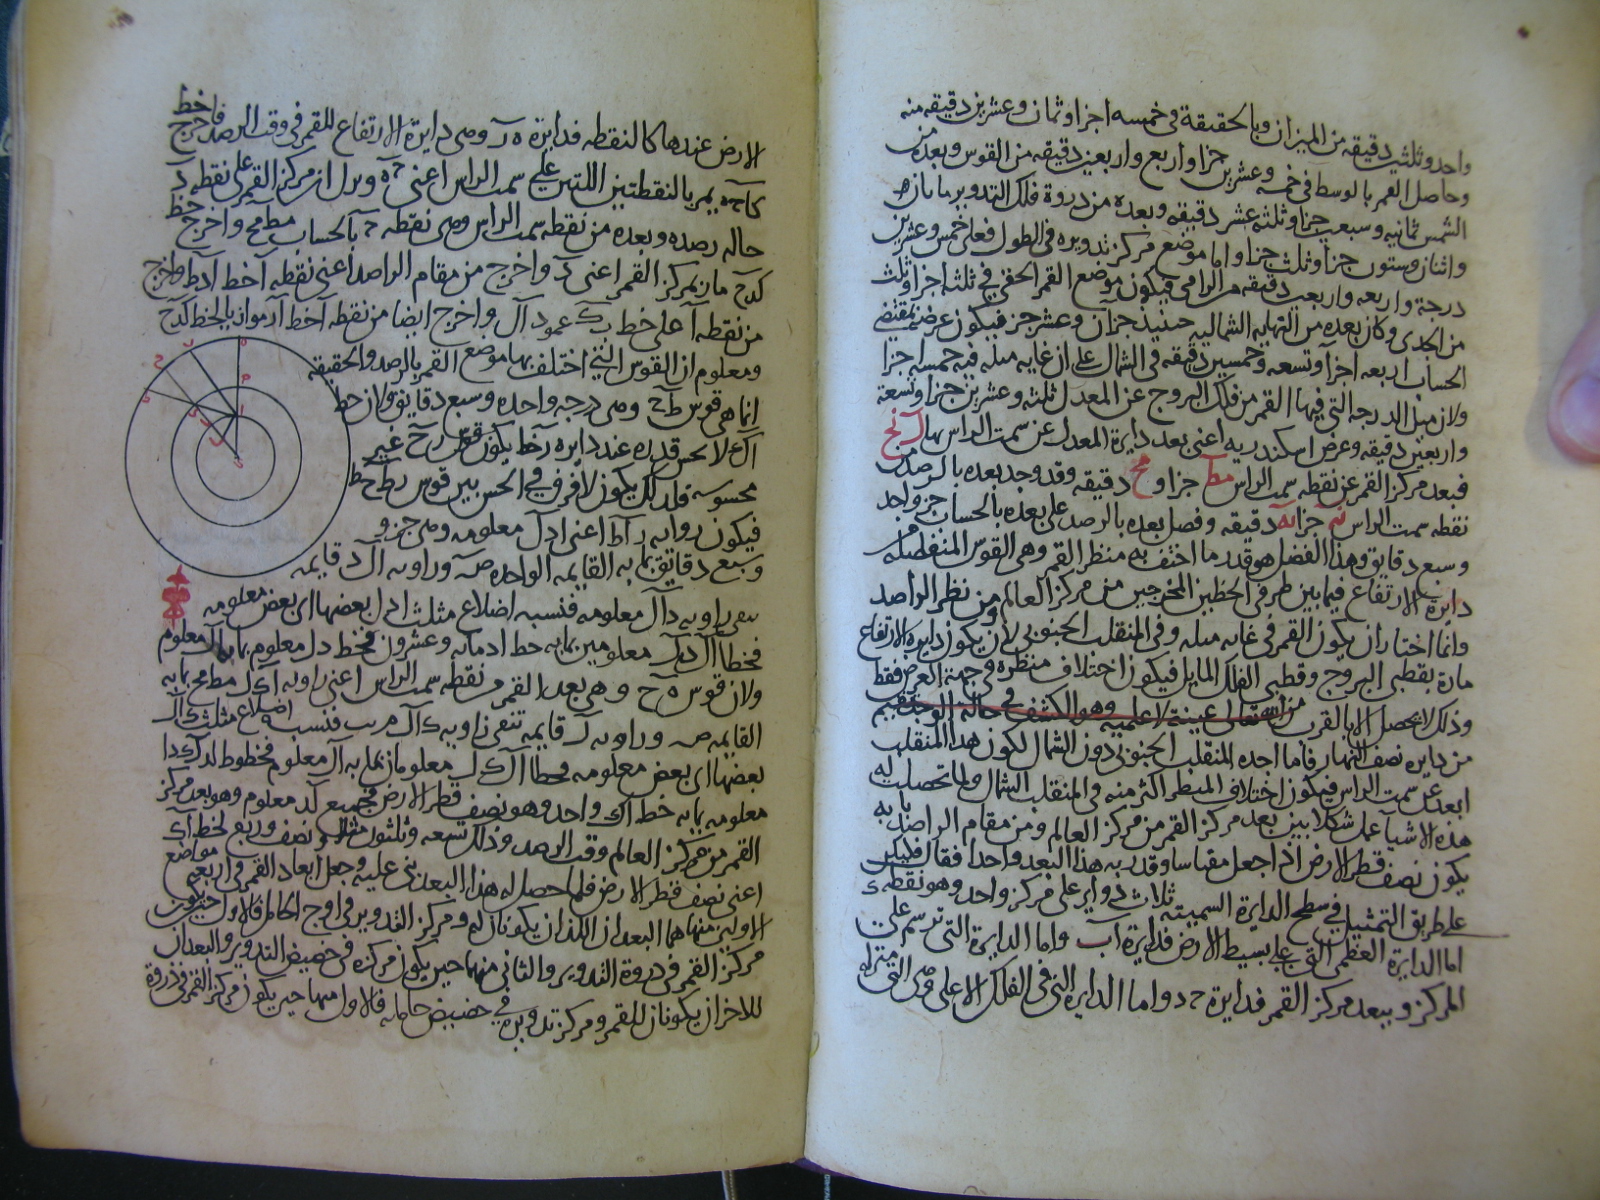 واحد وثلثين دقيقه من الميزان وبالحقيقة في خمسه اجزا وثمان وعشرين دقيقه منه
وحاصل القمر بالوسط في خمسه وعشرين جزا واربع واربعين دقيقه من القوس وبعده من
الشمس ثمانيه وسبعين جزا وثلثه عشر دقيقه وبعده من دروة فلك التدوير مايتان
واثنان وستون جزا وثلث جزا واما موضع مركز تدويره في الطول فعلى خمس وعشرين
درجة واربعه واربعين دقيقه من الرامي فيكون موضع القمر الحقي في ثلثه اجزا وثلث
من الجدي وكان بعده من النهايه الشماليه حينيذ جزان وعشر جز فيكون عرضه بمقتضى
الحساب اربعه اجزا وتسعه وخمسين دقيقه في الشمال على ان غايه ميله فيه خمسه اجزا
ولان ميل الدرجه التي فيها القمر من فلك البروج عن المعدل ثلثه وعشرين جزا وتسعة
واربعين دقيقه وعرض اسكندريه اعني بعد دايرة المعدل عن سمت الراس بها ل نح
فبعد مركز القمر عن نقطه سمت الراس مط جزا و مح دقيقه وقد وجد بعده بالرصد من
نقطه سمت الراس ن جزا نه دقيقه وفصل بعده بالرصد على بعده بالحساب جزو احد
وسبع دقايق وهذا الفضل هو قدر ما اختف به منظر القمر وهي القوس المنفصله من
دايرة الارتفاع فيما بين طرفي الخطين المخرجين من مركز العالم ومن نظر الراصد
وانما اختار ان يكون القمر في غايه ميله وفي المنقلب الجنوبي لان يكون دايره الارتفاع
مارة بقطبي البروج وقطبي الفلك المايل فيكون اختلاف منظره في جهة العرض فقط
وذلك لا يحصل الا بالقرب
من دايره نصف النهار فاما اجده المنقلب الجنوبي دون الشمال لكون هذا المنقلب
ابعد عن سمت الراس فيكون اختلاف المنظر اكثر منه في المنقلب الشمال ولما تحصلت له
هذه الاشيا عمل شكلا يبين بعد مركز القمر من مركز العالم ومن مقام الراصد بما به
يكون نصف قطر الارض اذا جعل مقياسا وقدر به هذا البعد واحدا فقال فليكن
على طريق التمثيل في سطح الدايرة السميته ثلاث دواير على مركز واحد وهو نقطه ك
اما الدايرة العظمى التي على بسيط الارض فدايرة اب واما الدايرة التي ترسم على
المركز وببعد مركز القمر فدايرة ح د واما الدايرة التي في الفلك الاعلى وهي التي منزله
الارض عندها كالنقطه فدايرة ه ر وهي دايرة الارتفاع للقمر في وقت الرصد فاخرج خط
كاحه يمر بالنقطتين اللتين على سمت الراس اعني ح ه وبدل ان مركز القمر على نقطه د
حاله رصده وبعده من نقطه سمت الراس وهي نقطه ح بالحساب مط مح واخرج خط
كدح مارا بمركز القمر اعني د واخرج من مقام الراصد اعني نقطه ا خط ادط واخرج
من نقطه ا على خط دك عمود ال واخرج ايضا من نقطه ا خط ار موازيا لخط كدح
ومعلوم ان القوس التي اختلف بها موضع القمر بالرصد والحقيقه
انما هي قوس طح وهي درجه واحده وسبع دقايق ولان خط
اك لا يحس قدره عند دايره رحط يكون قوس رح غير
محسوسه فلذلك يكون لا فرق في الحس بين قوس رط حط
فيكون زوايه راط اعني ادل معلومه وهي جز و
وسبع دقايق بما به القايمه الواحده ص وزاويه ال د قايمه
تبقى زاويه دال معلومه فنسبه اضلاع مثلث ادل بعضها الى بعض معلومه
فخطا ال دل معلومين بما به خط اد مايه وعشرون فخط دل معلوم بما به ال معلوم
ولان قوس ه ح وهي بعد القمر من نقطه سمت الراس اعني زاويه اكل مط مح بما به
القايمه ص وزاويه ل قايمه تبقى زاويه كال م يب فنسب اضلاع مثلث كال
بعضها الى بعض معلومه فخطا ال كل معلومان بما به ال معلوم فخطوط لد ال دا
معلومه بما به خط اك واحد وهو نصف قطر الارض فجميع كد معلوم وهو بعد مركز
القمر من مركز العالم وقت الرصد وذلك تسعه وثلثون مثلا ونصف وربع لخط اك
اعني نصف قطر الارض فلما حصل له هذا البعد بنى عليه وجعل ابعاد القمر في اربعه مواضع
الاولين منها هما البعدان اللذان يكونان له ومركز التدوير في اوج الحامل فالاول حين يكون
مركز القمر في دروة التدوير والثاني منها حين يكون مركزه في حضيض التدوير والبعدان
للاخران يكونان للقمر ومركز تدويره في حضيض حامله فالاول منها حين يكون مركز القمر في ذروة